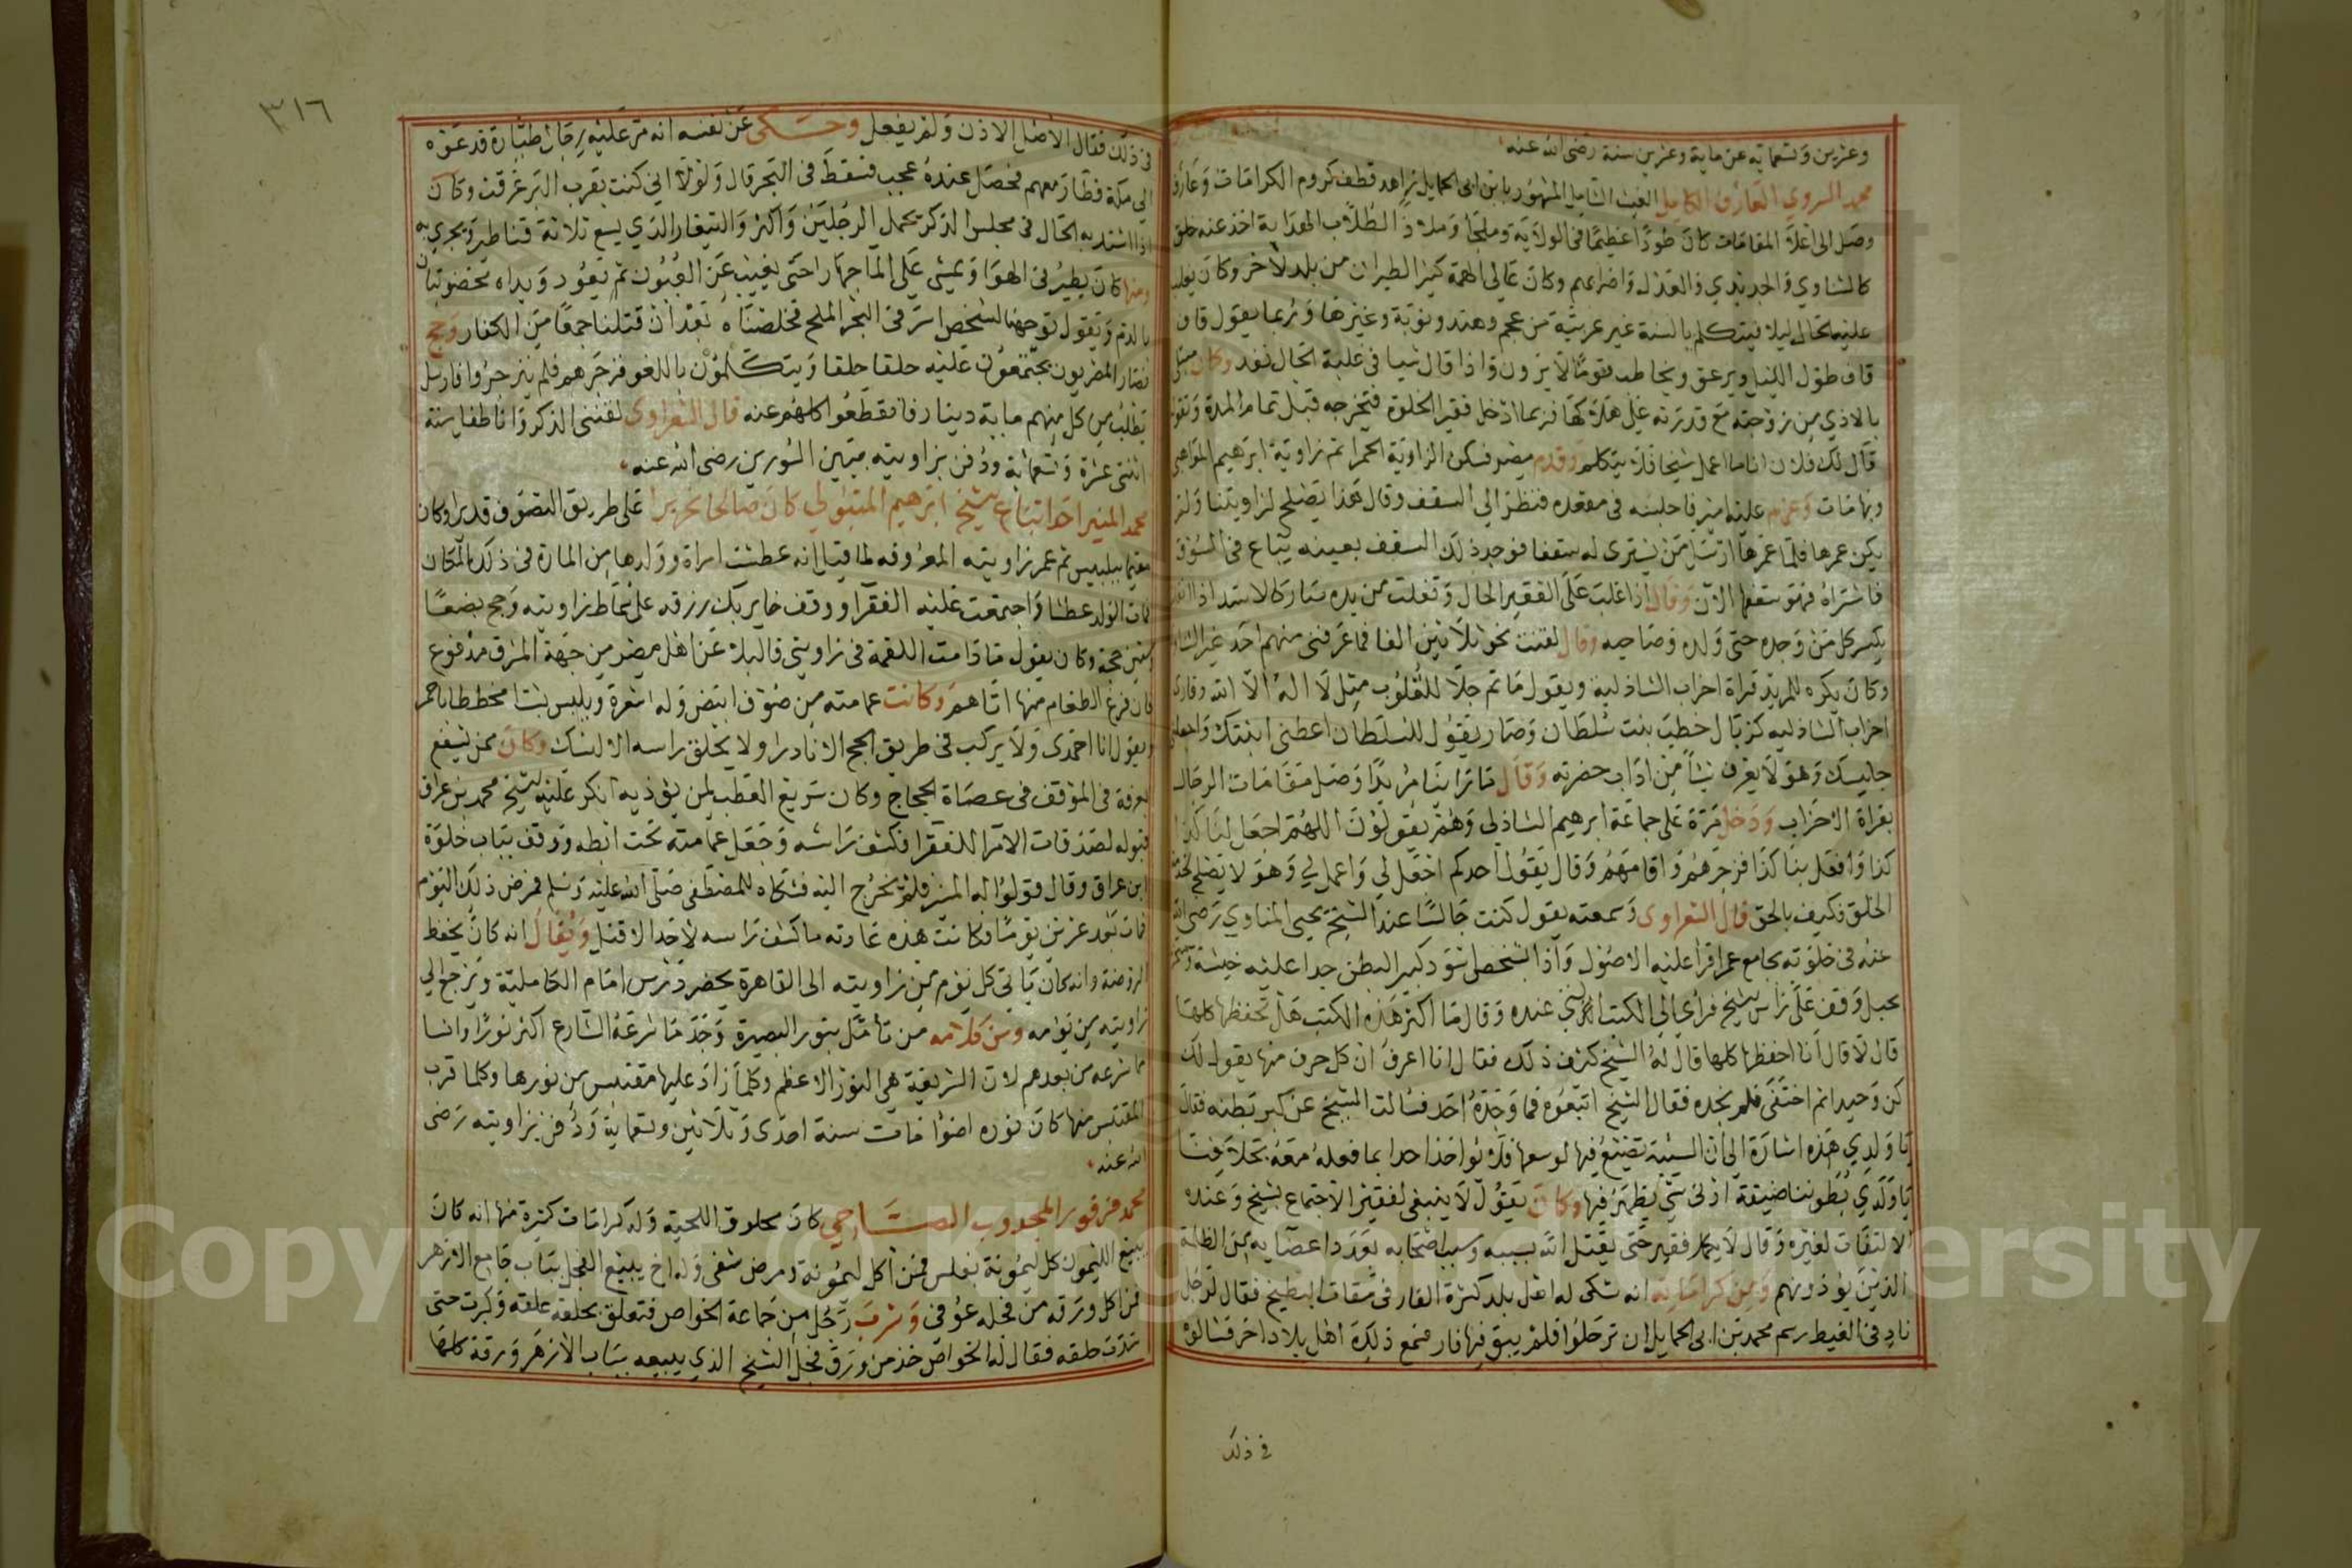 وعشرين وتسعمائة عن ماية وعشرين سنة رضى الله عنه
محمد السروي العارف الكامل الغيث الشامل المشهور بابن ابى الحمايل زاهد قطف كروم الكرامات وعارف
وصل الى اعلا المقامات كان طودا عظيما فى الولاية وملجا وملاذ الطلاب الهداية اخذ عنه خلق
كالشناوي والحديدي والعدل واضرابهم وكان عالى الهمة كثير الطيران من بلد لاخر وكان يغلب
عليه الحال ليلا فيتكلم بالسنة غير عربية من عجم وهند ونوبة وغيرها وربما يقول قاق
قاق طول الليل ويزعق ويخاطب قوما لا يرون واذا قال شيا فى غلبة الحال نفد وكان مبتلى
بالاذي من زوجته مع قدرته على هلاكها فربما ادخل فقير الخلوة فتخرجه قبل تمام المدة وتقول
قال لك فلان انا ما اعمل شيخا فلا يتكلم وقدم مصر فسكن الزاوية الحمرا ثم زاوية ابرهيم المواهبي
وبها مات وعزم عليه امير فاجلسه فى مقعده فنظر الى السقف وقال هذا يصلح لزاويتنا ولم
يكن عمرها فلما عمرها ارسل من يشترى له سقفا فوجد ذلك السقف بعينه يباع فى السوق
فاشتراه فهو سقفها الآن وقال اذا غلب على الفقير الحال وتفلت من يده صار كالاسد اذا انفلت
يكسر كل من وجده حتى ولده وصاحبه وقال لقنت نحو ثلاثين الفا فما عرفنى منهم احد غير الشناوي
وكان يكره للمريد قراة احزاب الشاذلية ويقول ما ثم جلا للقلوب مثل لا اله الا الله وقارى
احزاب الشاذليه كزبال خطب بنت سلطان وصار يقول للسلطان اعطنى ابنتك واجعلنى
جليسك وهو لا يعرف شيأ من اداب حضرته وقال ما راينا مريدا وصل مقامات الرجال
بقراة الاحزاب ودخل مرة على جماعة ابرهيم الشاذلى وهم يقولون اللهم اجعل لنا كذا
كذا وافعل بنا كذا فزجرهم واقامهم وقال يقول احدكم اجعل لي واعمل لي وهو لا يصلح لخدمة
الخلق فكيف بالحق قال الشعراوى وسمعته يقول كنت جالسا عند الشيخ يحيى المناوي رضى الله
عنه فى خلوته بجامع عمرو اقرا عليه الاصول واذا بشخص اسود كبير البطن جدا عليه خيشة
بحبل وقف على راس الشيخ فرأى الى الكتب التي عنده وقال ما اكثر هذه الكتب هل تحفظها كلها
قال لا قال انا احفظها كلها قال له الشيخ كيف ذلك فقال انا اعرف ان كل حرف منها يقول لك
كن وحيدا ثم اختفى فلم نجده فقال الشيخ اتبعوه فما وجده احد فسالت الشيخ عن كبر بطنه فقال
يا ولدي هذه اشارة الى ان السيئة تضيع فيها لوسعها فلا يواخذ احدا بما فعله معه بخلافنا
يا ولدي بطوننا ضيقة ادنى شي يظهر فيها وكان يقول لا ينبغى لفقير الاجتماع بشيخ وعنده
الالتفات لغيره وقال لا يكمل فقير حتى يقتل الله بسببه وسبب اصحابه بعدد اعضايه من الظلمة
الذين يؤذونهم ومن كراماته انه شكى له اهل بلد كثرة الفار فى مقات البطيخ فقال لرجل
ناد فى الغيط رسم محمد بن ابى الحمايل ان ترحلوا فلم يبق فيها فار فسمع ذلك اهل بلاد اخر فسالوه
فى ذلك
٣١٦
فى ذلك فقال الاصل الاذن ولم يفعل وحكى عن نفسه انه مر عليه رجال طيارة فدعوه
الى مكة فطار معهم فحصل عنده عجب فسقط فى البحر قال ولولا انى كنت بقرب البر غرقت وكان
اذا اشتد به الحال فى مجلس الذكر تحمل الرجلين واكثر والتيغار الذي يسع ثلاثة قناطير ويجري به
وهذا كان يطير فى الهوا ويمشى على الما جهارا حتى يغيب عن العيون ثم يعود ويداه مخضوبتان
بالدم ويقول توجهنا لشخص اسر فى البحر الملح فخلصناه بعد ان قتلنا جمعا من الكفار وحج
فصار المصريون يجتمعون عليه حلقا حلقا ويتكلمون باللغو فزجرهم فلم ينزجروا فارسل
يطلب من كل منهم ماية دينار فانقطعوا كلهم عنه قال الشعراوى لقننى الذكر وانا طفل سنة
اثنتى عشرة وتسعماية ودفن بزاويته بين السورين رضى الله عنه
محمد المنير احد اتباع شيخ ابرهيم المتبولي كان صالحا نحريرا على طريق التصوف قديرا وكان
مقيما ببلبيس ثم عمر زاويته المعروفه لما قيل انه عطشت امراة وولدها من المارة فى ذلك المكان
فمات الولد عطشا واجتمعت عليه الفقرا ووقف خاير بك رزقه على سماط زاويته وحج بضعا
وستين حجة وكان يقول ما دامت اللقمة فى زاويتى فالبلا عن اهل مصر من جهة الشرق مدفوع
فان فرغ الطعام منها اتاهم وكانت عمامته من صوف ابيض وله شعرة ويلبس بشتا مخططا باحمر
ويقول انا احمدى ولا يركب فى طريق الحج الا نادرا ولا يحلق راسه الا لنسك وكان ممن يشفع
بعرفة فى الموقف فى عصاة الحجاج وكان سريع العطب لمن يؤذيه انكر عليه الشيخ محمد بن عراق
قبوله لصدقات الامرا للفقرا فكشف راسه وجعل عمامته تحت ابطه ووقف بباب خلوة
ابن عراق وقال قولوا له المنير فلم يخرج اليه فشكاه للمصطفى صلى الله عليه وسلم فمرض ذلك اليوم
فمات بعد عشرين يوما وكانت هذه عادته ما كشف راسه لاحد الا قتل ويقال انه كان يحفظ
الروضة وانه كان ياتى كل يوم من زاويته الى القاهرة يحضر درس امام الكاملية ويرجع الي
زاويته من يومه ومن كلامه من تأمل بنور البصيرة وجد ما شرعه الشارع اكثر نورا وانسا
مما شرعه من بعدهم لان الشريعة هى النور الاعظم وكلما زاد عليها مقتبس من نورها وكلما قرب
المقتبس منها كان نوره اضوا مات سنة احدى وثلاثين وتسعماية ودفن بزاويته رضى
الله عنه
محمد فرفور المجدوب الصاحي كان محلوق اللحية وله كرامات كثيرة منها انه كان
يبيع الليمون كل ليمونة بفلس فمن اكل ليمونة ومرض شفى وله اخ يبيع الفجل بباب جامع الازهر
فمن اكل ورقه من فجله عوفى وشرب رجل من جماعة الخواص فتعلق بحلقه علقة وكبرت حتى
سدت حلقه فقال له الخواص خذ من ورق فجل الشيخ الذي يبيعه بباب الازهر ورقة كلها
Copyright © King Saud University